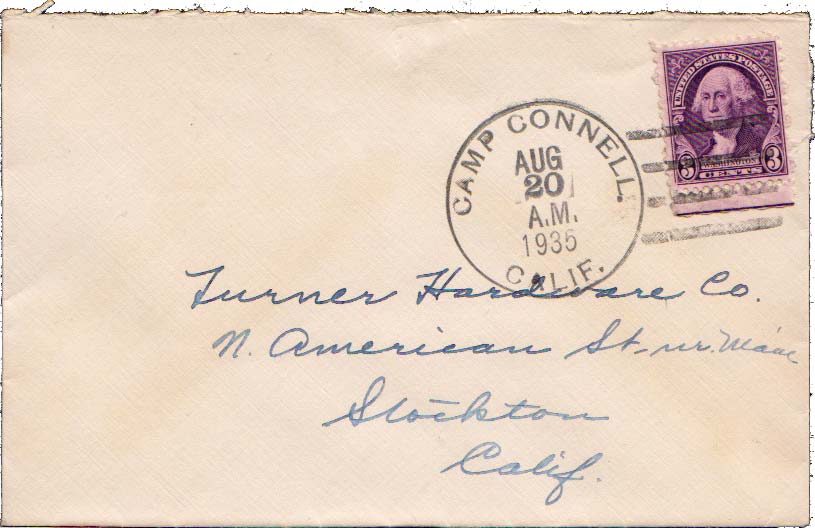 UNITED STATES POSTAGE
WASHINGTON
3 CENTS 3
CAMP CONNELL.
AUG
20
A.M.
1935
CALIF.
Turner Hardware Co.
N. American St-nr. Main
Stockton
Calif.